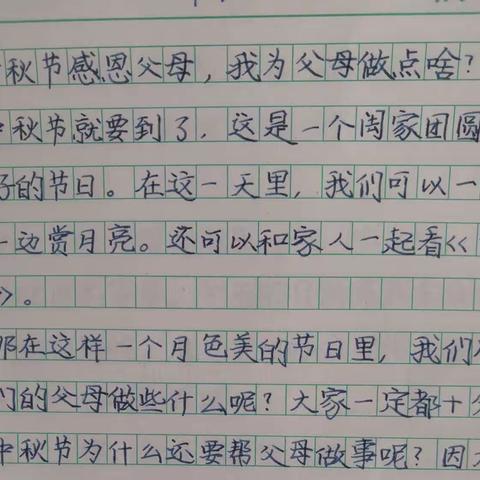 秋节感恩父母，我为父母做点啥？
中秋节就要到了，这是一个阖家团圆
的节日。在这一天里，我们可以一
一边赏月亮。还可以和家人一起看《
》。
那在这样一个月色美的节日里，我们
们的父母做些什么呢？大家一定都十分
中秋节为什么还要帮父母做事呢？因